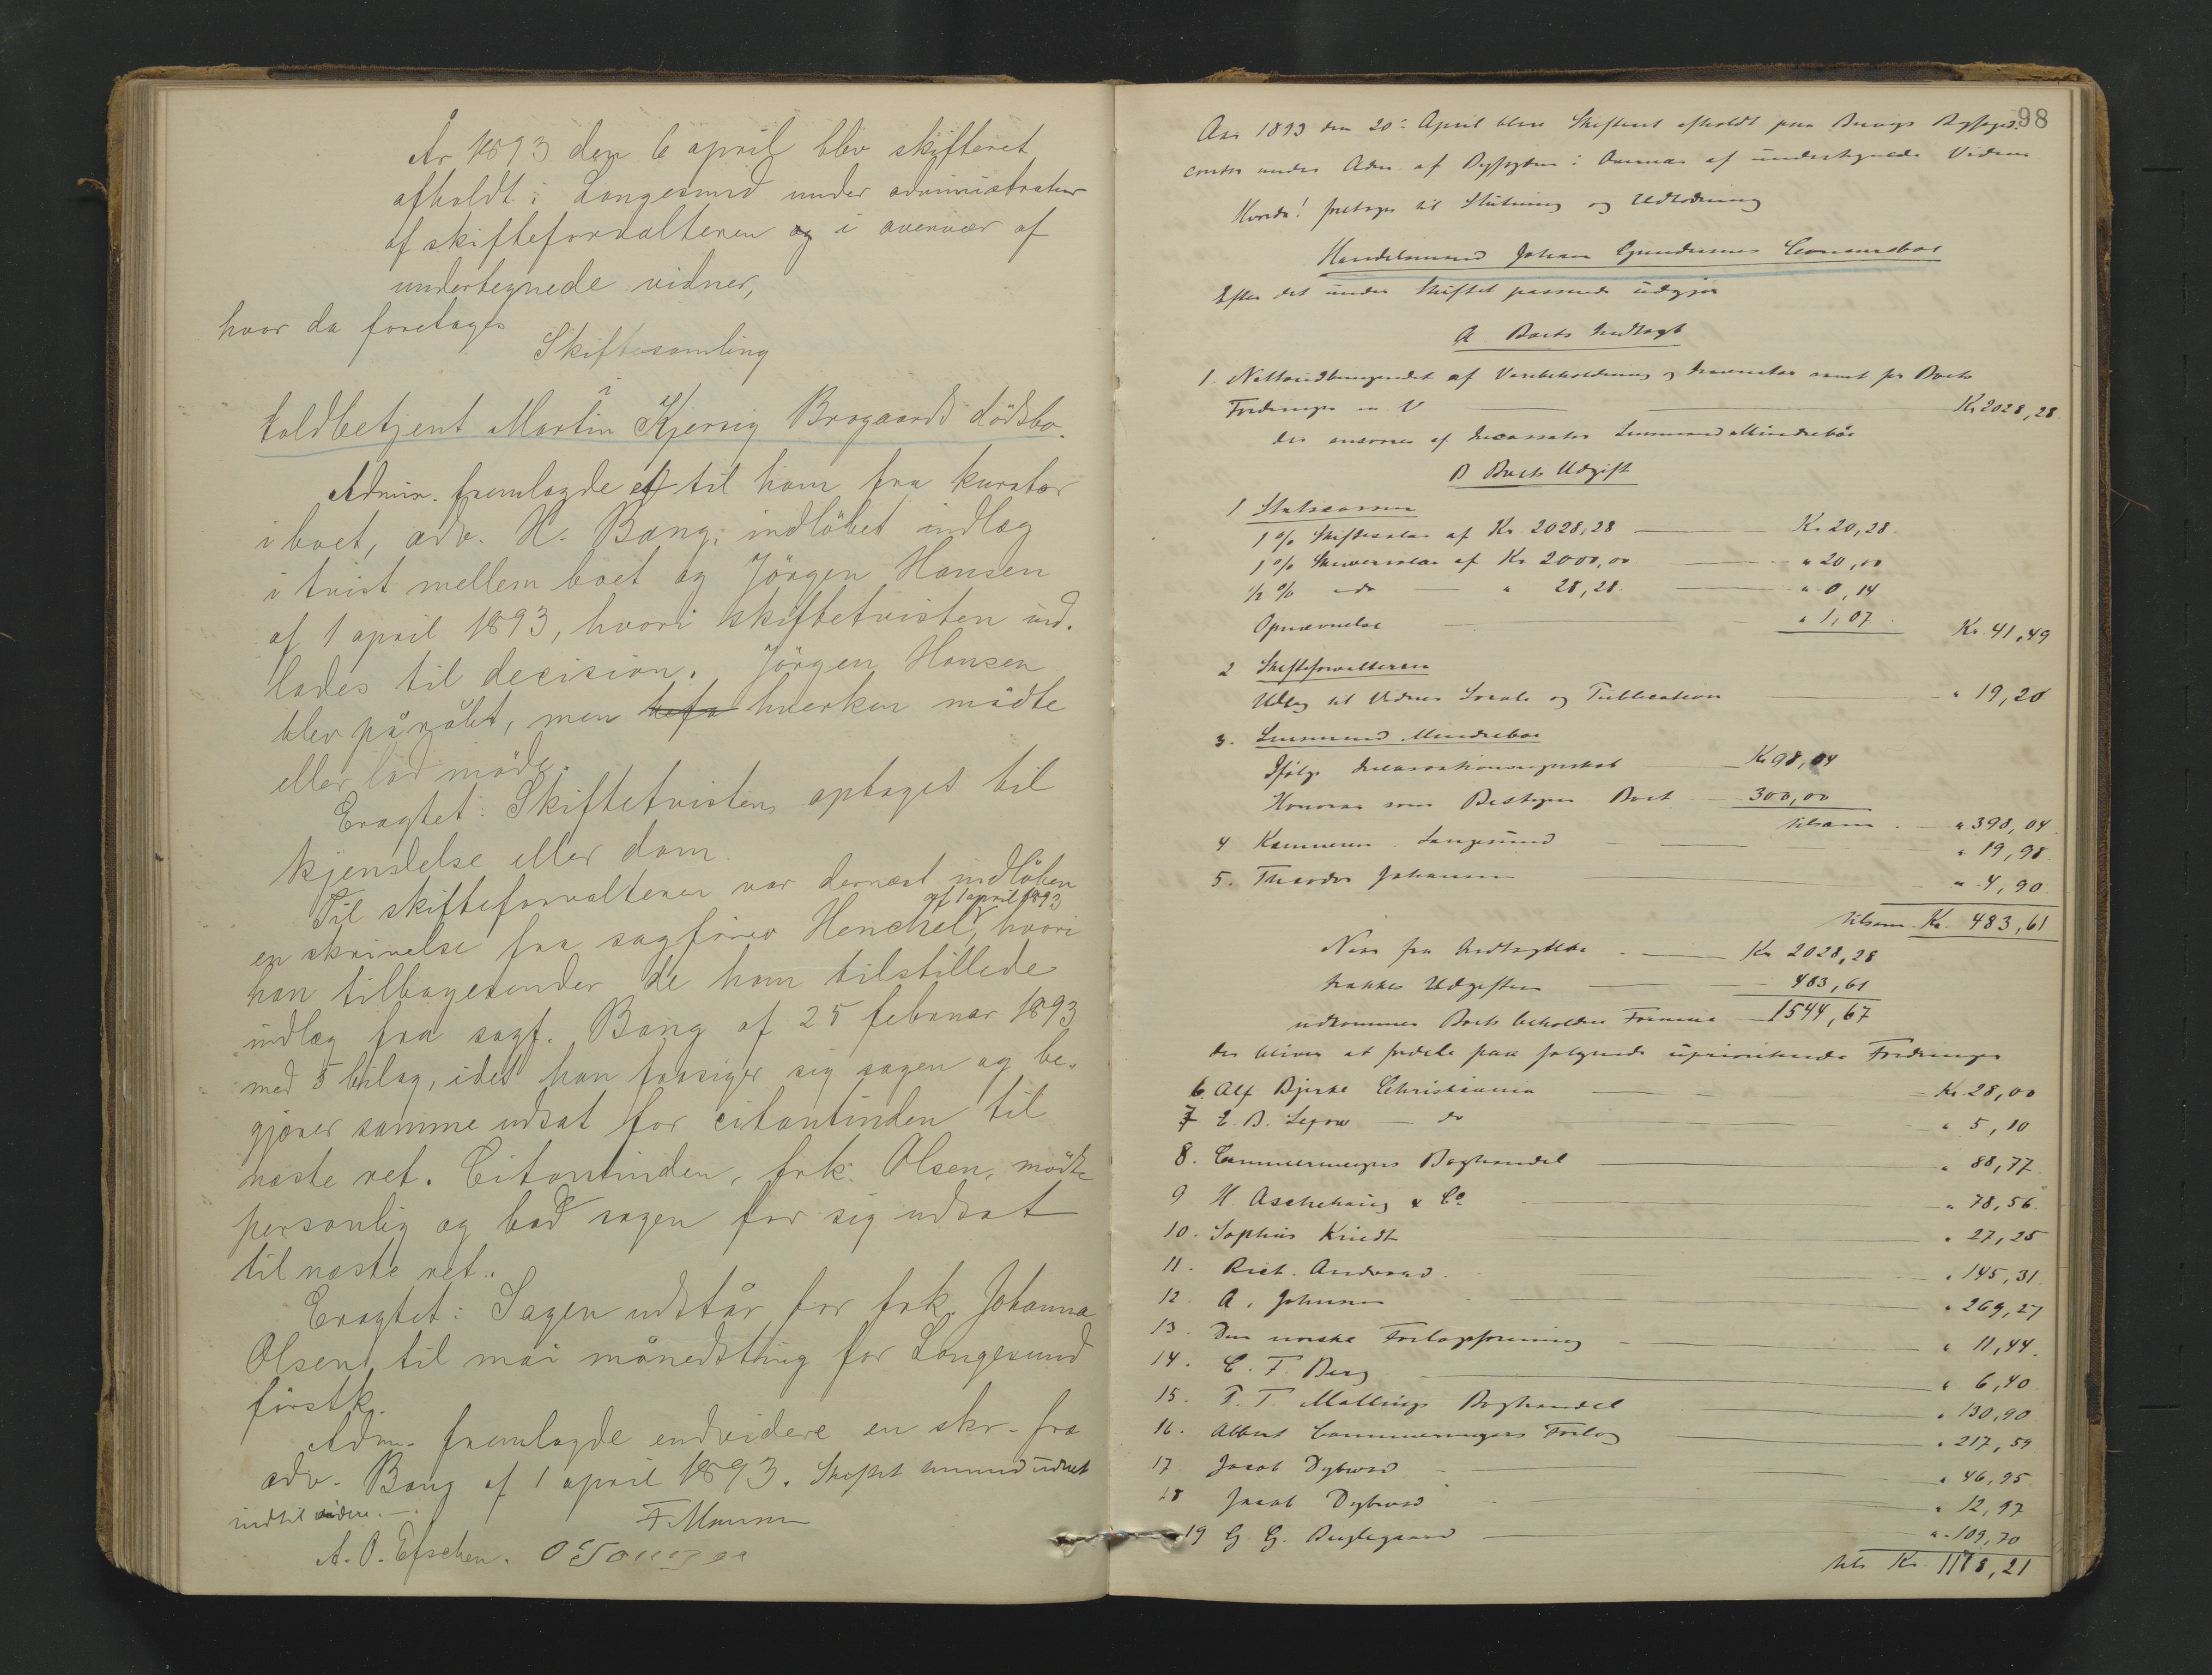 År 1893 den 6 april blev skifteret
afholdt i Langesund under administration
af skifteforvalteren og i overvær af
undertegnede vidner,
hvor da foretages
Skiftesamling
i
toldbetjent Martin Kjersig Brogaards dödsbo.
Admin. fremlagde et til ham fra kurator
i boet, adv. H. Bang, indlöbet indlæg
i tvist mellem boet og Jörgen Hansen
af 1 april 1893, hvori skiftetvisten ind.
lades til decision. Jörgen Hansen
blev påråbt, men hverken mödte
eller lod möde.
Eragtet: Skiftetvisten optages til
kjendelse eller dom.
Til skifteforvalteren var dernæst indlöben
af 1 april 1893
en skrivelse fra sagförer Henchel, hvori
han tilbagesender de ham tilstillede
indlæg fra sagf. Bang af 25 februar 1893
med 5 bilag, idet han frasiger sig sagen og be-
gjærer samme udsat for citantinden til
næste ret. Citantinden, frk. Olsen, mödte
personlig og bad sagen for sig udsat
til næste ret.
Eragtet: Sagen udstår for frk. Johanna
Olsen til mai månedsting for Langesund
förstk.
Adm. fremlagde endvidere en skr. fra
adv. Bang af 1 april 1893. Skiftet udsat
indtil videre.
A. O. Efschen.
98
Aar 1893 den 20 April blev Skifteret afholdt paa Brevigs Byfoged-
contor under Adm. af Byfogden i Overvær af undertegnede Vidner
Hvorda! foretages til Slutning og Udlodning
Handelsmand Johan Gundersens Concursbo
Efter det under Skiftet passerede udgjør
A Boets Indtægt
1. Nettoudbringendet af Varebeholdning og Inventar samt for Boets
Fordringer m. V Kr 2028,28
der ansvares af Incassator Lensmand Mindreboe
B Boets Udgift
1 Statscassen
1 % Skiftesalær af Kr 2028,28 Kr. 20,28
1 % Skriversalær af Kr 2000,00 " 20,00
1/2 % do " 28,28 " 0,14
Opnævnelse " 1,07 Kr. 41,49
2 Skifteforvalteren
Udlæg til Vidner Locale og Publication " 19,20
3. Lensmand Mindreboe
Ifølge Incassationsregnskab Kr 98,04
Honorar som Bestyrer Boet 300,00
tilsam " 398,04
4 Kæmneren Langesund " 19,98
5. Theodor Johansen " 4,90
tilsam Kr. 483,61
Naar fra Indtægten Kr 2028,28
trækkes Udgiften 483,61
udkommer Boets beholdne Formue 1544,67
der bliver at fordele paa følgende uprioriterede Fordringer
6. Alf Bjerke Christiania Kr. 28,00
7 E. B. do " 5,10
8. Cammermeyers Boghandel " 88,77
9 H. Aschehoug & Co " 78,56
10. Sophus Kriedt " 27,25
11. Rich. Andvord " 145,31
12 A. Johnsen " 269,27
13 Den norske Forlagsforening " 11,44
14. C. F. Berg " 6,40
15. P. T. Mallings Boghandel " 130,90
16. Albert Cammermeyers Forlag " 217,59
17 Jacob Dybwad " 46,95
18 Jacob Dybwad " 12,97
19 G. G. " 109,70
tils Kr 1178,21